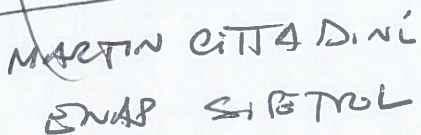 MARTIN CITTADINI
ENAP SIPETROL